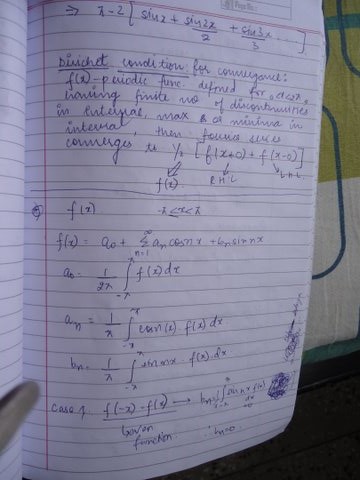 ⇒ π-2 [ sin x + sin 2x/2 + sin 3x/3 ... ]
Dirichlet condition for convergence:
f(x)-periodic func. defined for
having finite no of discontinuities
in interval, max & or minima in
interval, then fourier series
converges to ½ [f(x+0) + f(x-0)]
f(x) R.H.L L.H.L
f(x) -π ≤ x < π
f(x) = a₀ + ∑ₙ₌₁^∞ aₙ cos nx + bₙ sin nx
a₀ = 1/2π ∫₋π^π f(x) dx
aₙ = 1/π ∫₋π^π cos n(x) f(x) dx
bₙ = 1/π ∫₋π^π sin nx . f(x) dx
Case 1 f(-x) - f(x) → bₙ = 1/π ∫₋π^π sin nx f(x) dx
Even =0
function ∴ bₙ=0